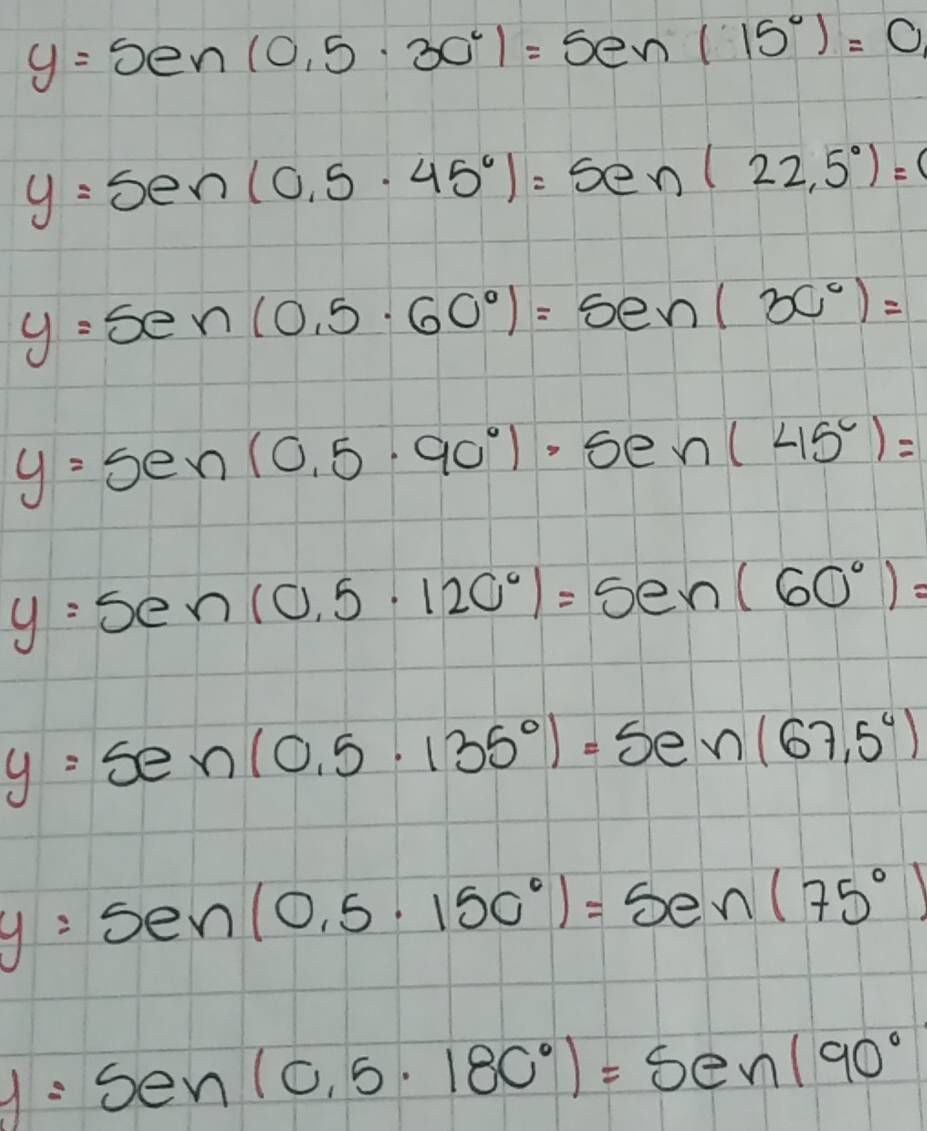 y = sen(0,5 · 30°) = sen(15°) = 0,
y = sen(0,5 · 45°) = sen(22,5°) =
y = sen(0,5 · 60°) = sen(30°) =
y = sen(0,5 · 90°) = sen(45°) =
y = sen(0,5 · 120°) = sen(60°) =
y = sen(0,5 · 135°) = sen(67,5°)
y = sen(0,5 · 150°) = sen(75°)
y = sen(0,5 · 180°) = sen(90°